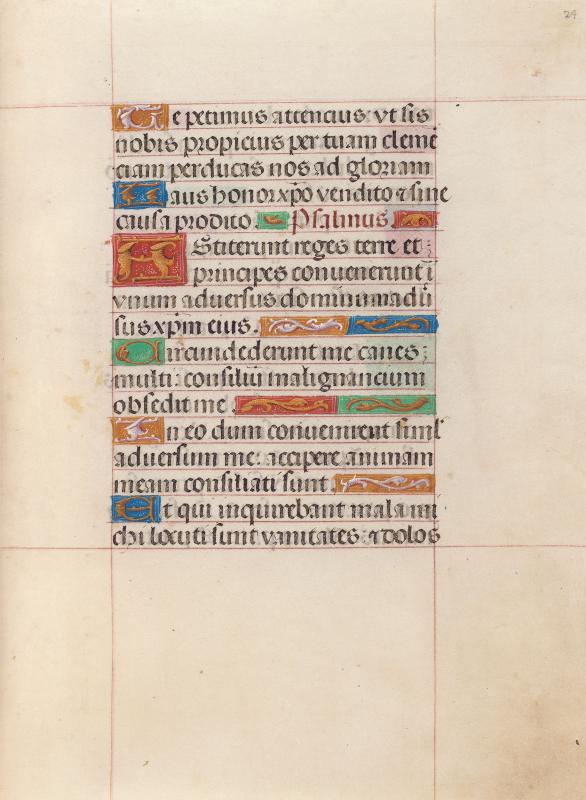 24
Te petimus attencius: vt sis
nobis propicius per tuam clemē
ciam perducas nos ad gloriam
Laus honor xp̄o vendito ⁊ sine
causa prodito. Psalmus.
AStiterunt reges terre et :
principes conuenerunt ī
vnum aduersus dominum adū
sus xp̄m eius.
Circumdederunt me canes :
multi: consiliū malignancium
obsedit me.
In eo dum conuenirent siml̄
aduersum me: accipere animam
meam consiliati sunt.
Et qui inquirebant mala mi
chi locuti sunt vanitates: ⁊ dolos